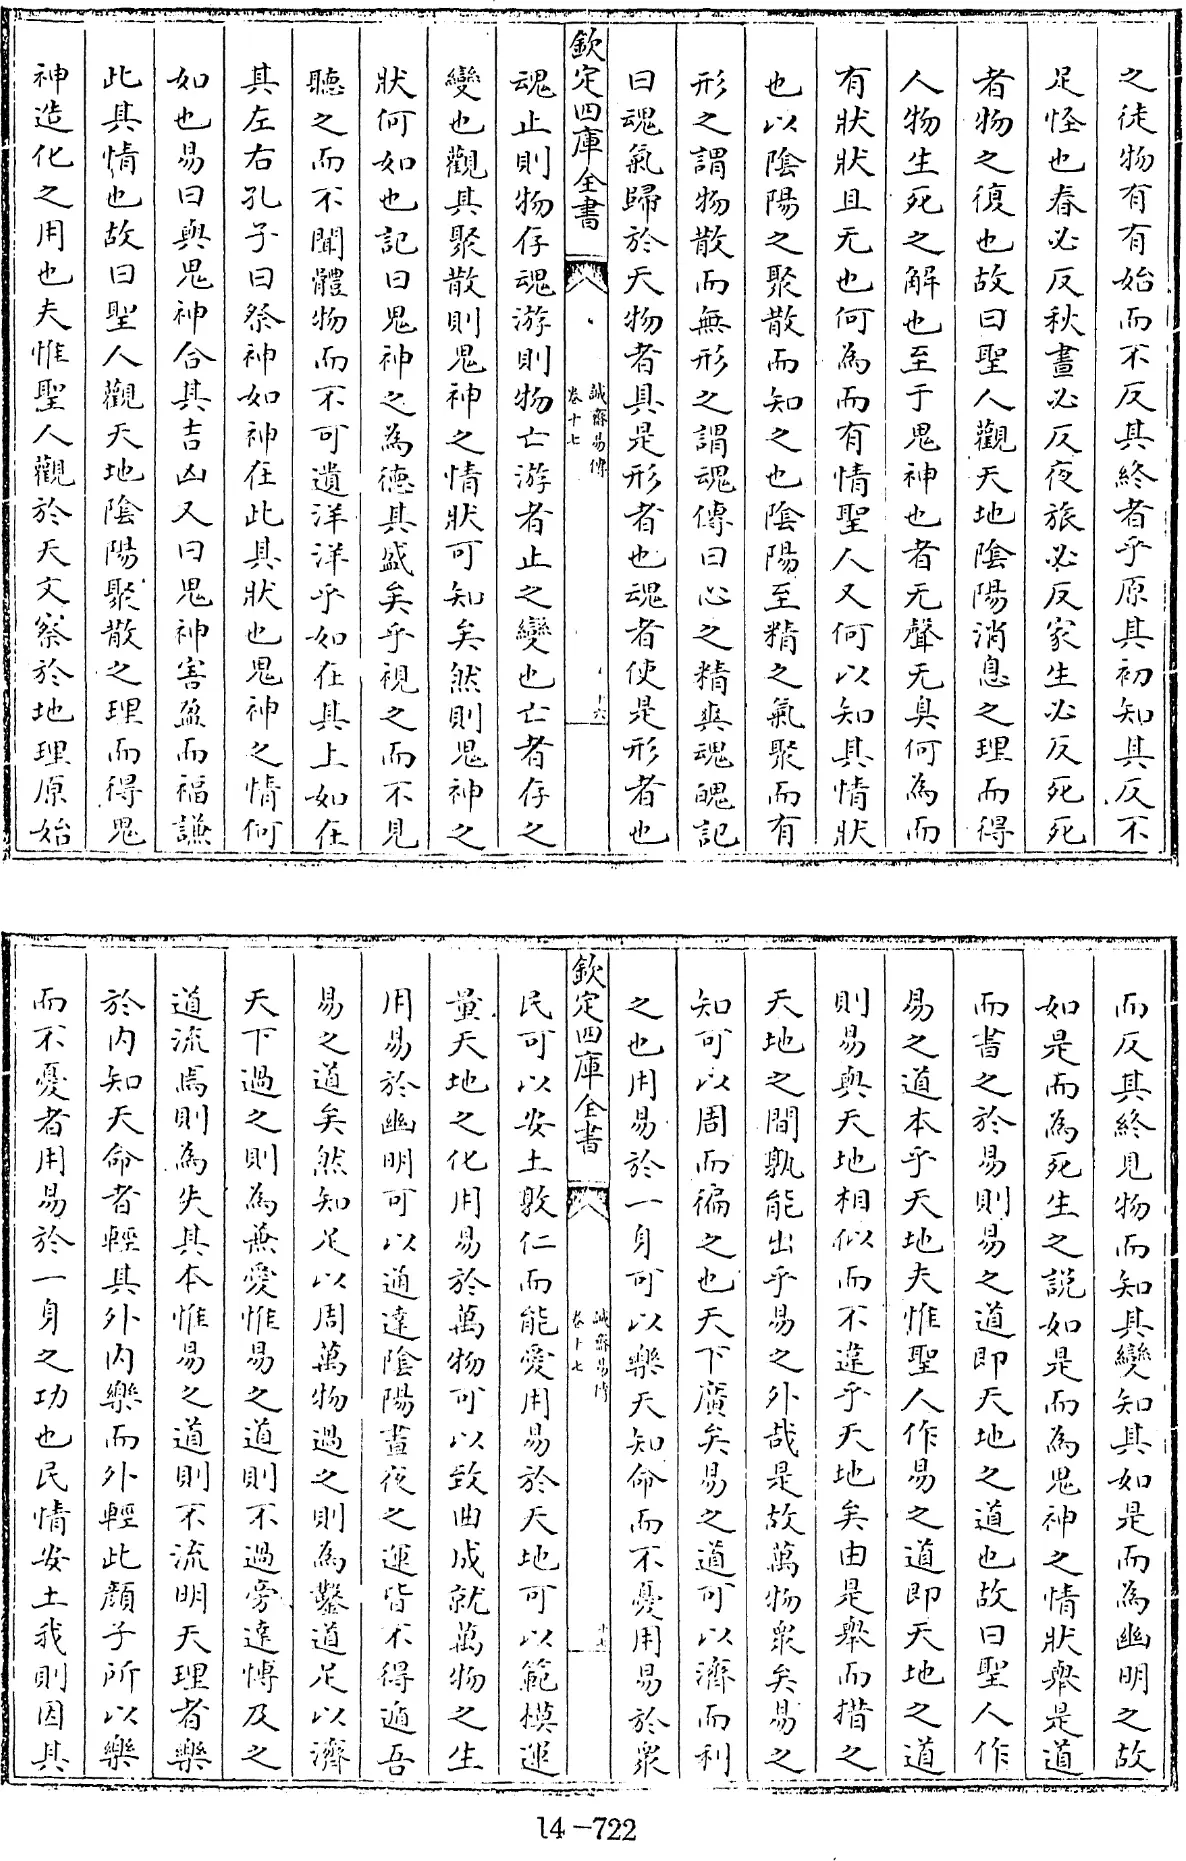 之徒物有有始而不反其終者乎原其初知其反不
足怪也春必反秋晝必反夜旅必反家生必反死死
者物之復也故曰聖人觀天地陰陽消息之理而得
人物生死之解也至于鬼神也者无聲无臭何為而
有狀狀且无也何為而有情聖人又何以知其情狀
也以陰陽之聚散而知之也陰陽至精之氣聚而有
形之謂物散而無形之謂魂傳曰心之精爽魂魄記
曰魂氣歸於天物者具是形者也魂者使是形者也
欽定四庫全書
誠齋易傳
卷十七
十六
魂止則物存魂游則物亡游者止之變也亡者存之
變也觀其聚散則鬼神之情狀可知矣然則鬼神之
狀何如也記曰鬼神之為德其盛矣乎視之而不見
聽之而不聞體物而不可遺洋洋乎如在其上如在
其左右孔子曰祭神如神在此其狀也鬼神之情何
如也易曰與鬼神合其吉凶又曰鬼神害盈而福謙
此其情也故曰聖人觀天地陰陽聚散之理而得鬼
神造化之用也夫惟聖人觀於天文察於地理原始
而反其終見物而知其變知其如是而為幽明之故
如是而為死生之說如是而為鬼神之情狀舉是道
而書之於易則易之道即天地之道也故曰聖人作
易之道本乎天地夫惟聖人作易之道即天地之道
則易與天地相似而不違乎天地矣由是舉而措之
天地之間孰能出乎易之外哉是故萬物衆矣易之
知可以周而徧之也天下廣矣易之道可以濟而利
之也用易於一身可以樂天知命而不憂用易於衆
欽定四庫全書
誠齋易傳
卷十七
十七
民可以安土敦仁而能愛用易於天地可以範模運
量天地之化用易於萬物可以致曲成就萬物之生
用易於幽明可以通達陰陽晝夜之運皆不得遁吾
易之道矣然知足以周萬物過之則為鑿道足以濟
天下過之則為兼愛惟易之道則不過旁達博及之
道流焉則為失其本惟易之道則不流明天理者樂
於內知天命者輕其外內樂而外輕此顏子所以樂
而不憂者用易於一身之功也民情安土我則因其
14-722